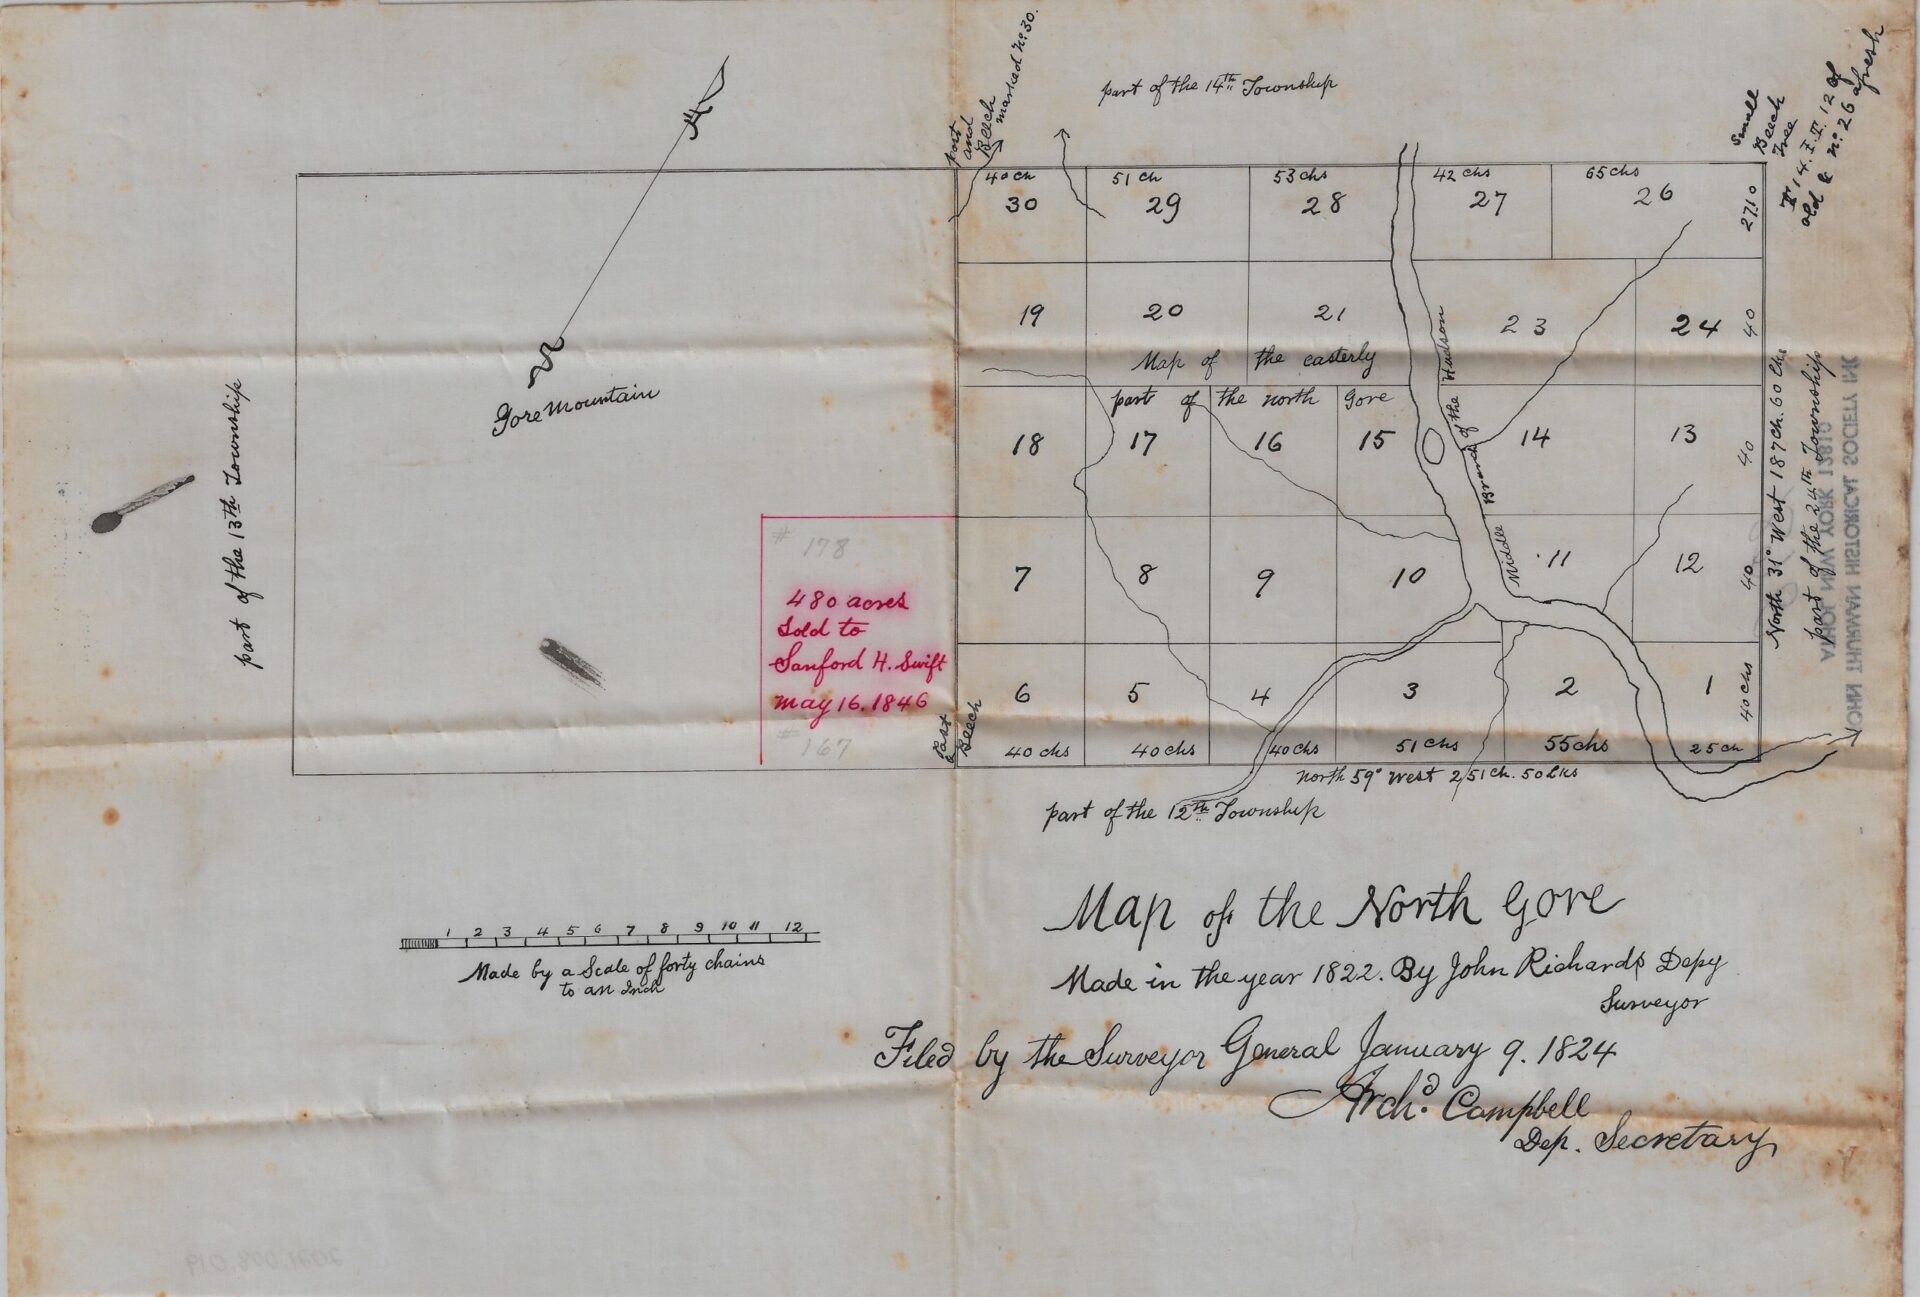 part of the 14th Township
Post
and
Beech
marked No. 30.
Small
Beech
Tree
old &
No. 26 afresh
40 ch
51 ch
53 chs
42 chs
65 chs
30
29
28
27
26
27.10
19
20
21
23
24
40
Map of the easterly
part of the north Gore
18
17
16
15
14
13
40
7
8
9
10
11
12
40
6
5
4
3
2
1
40 chs
40 chs
40 chs
40 chs
51 chs
55 chs
25 ch
Middle Branch of the Hudson
North 31° West 187 ch. 60 lks
part of the 24th Township
JOHN THURMAN HISTORICAL SOCIETY INC
ATHOL NEW YORK 12810
North 59° West 251 ch. 50 Lks
part of the 12th Township
Post
&
Beech
part of the 13th Township
Gore Mountain
# 178
480 acres
Sold to
Sanford H. Swift
May 16. 1846
# 167
1 2 3 4 5 6 7 8 9 10 11 12
Made by a Scale of forty chains
to an Inch
Map of the North Gore
Made in the year 1822. By John Richards Depy
Surveyor
Filed by the Surveyor General January 9. 1824
Archd. Campbell
Dep. Secretary
2021.008.019